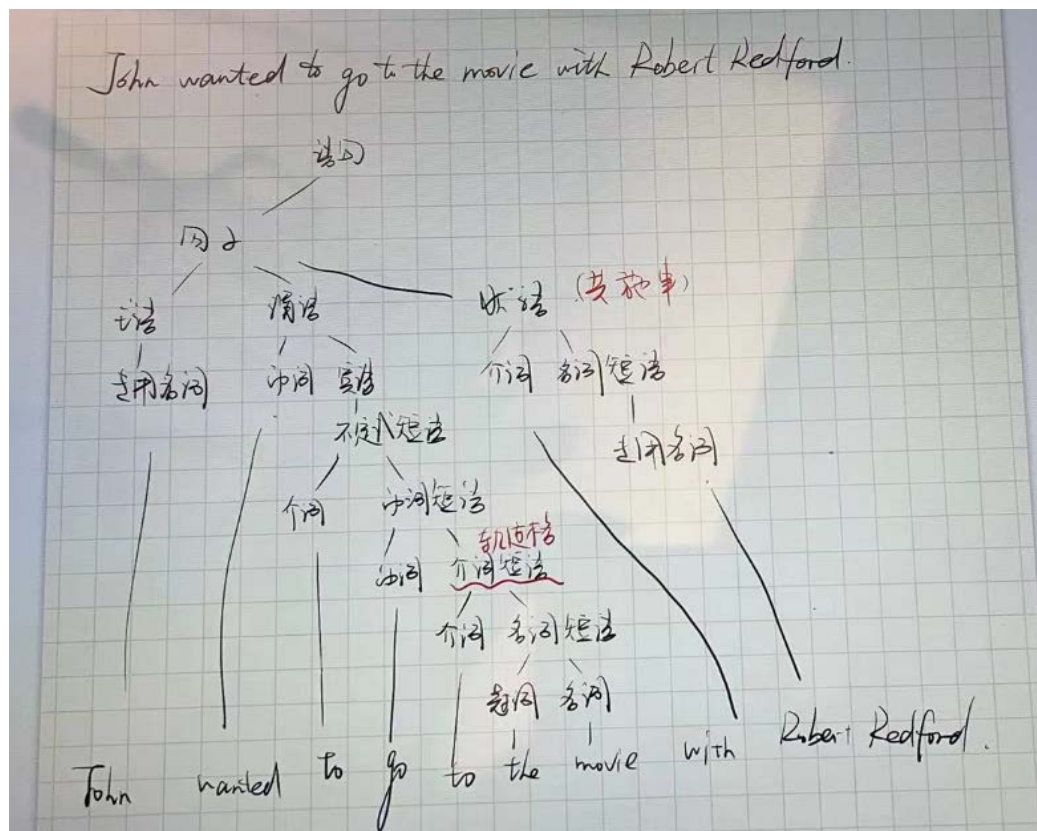 John wanted to go to the movie with Robert Redford.
语句
句子
主语 谓语 状语 (共施事)
专用名词 动词 宾语 介词 名词短语
不定式短语 专用名词
介词 动词短语
轨迹格
动词 介词短语
介词 名词短语
冠词 名词
John wanted to go to the movie with Robert Redford.